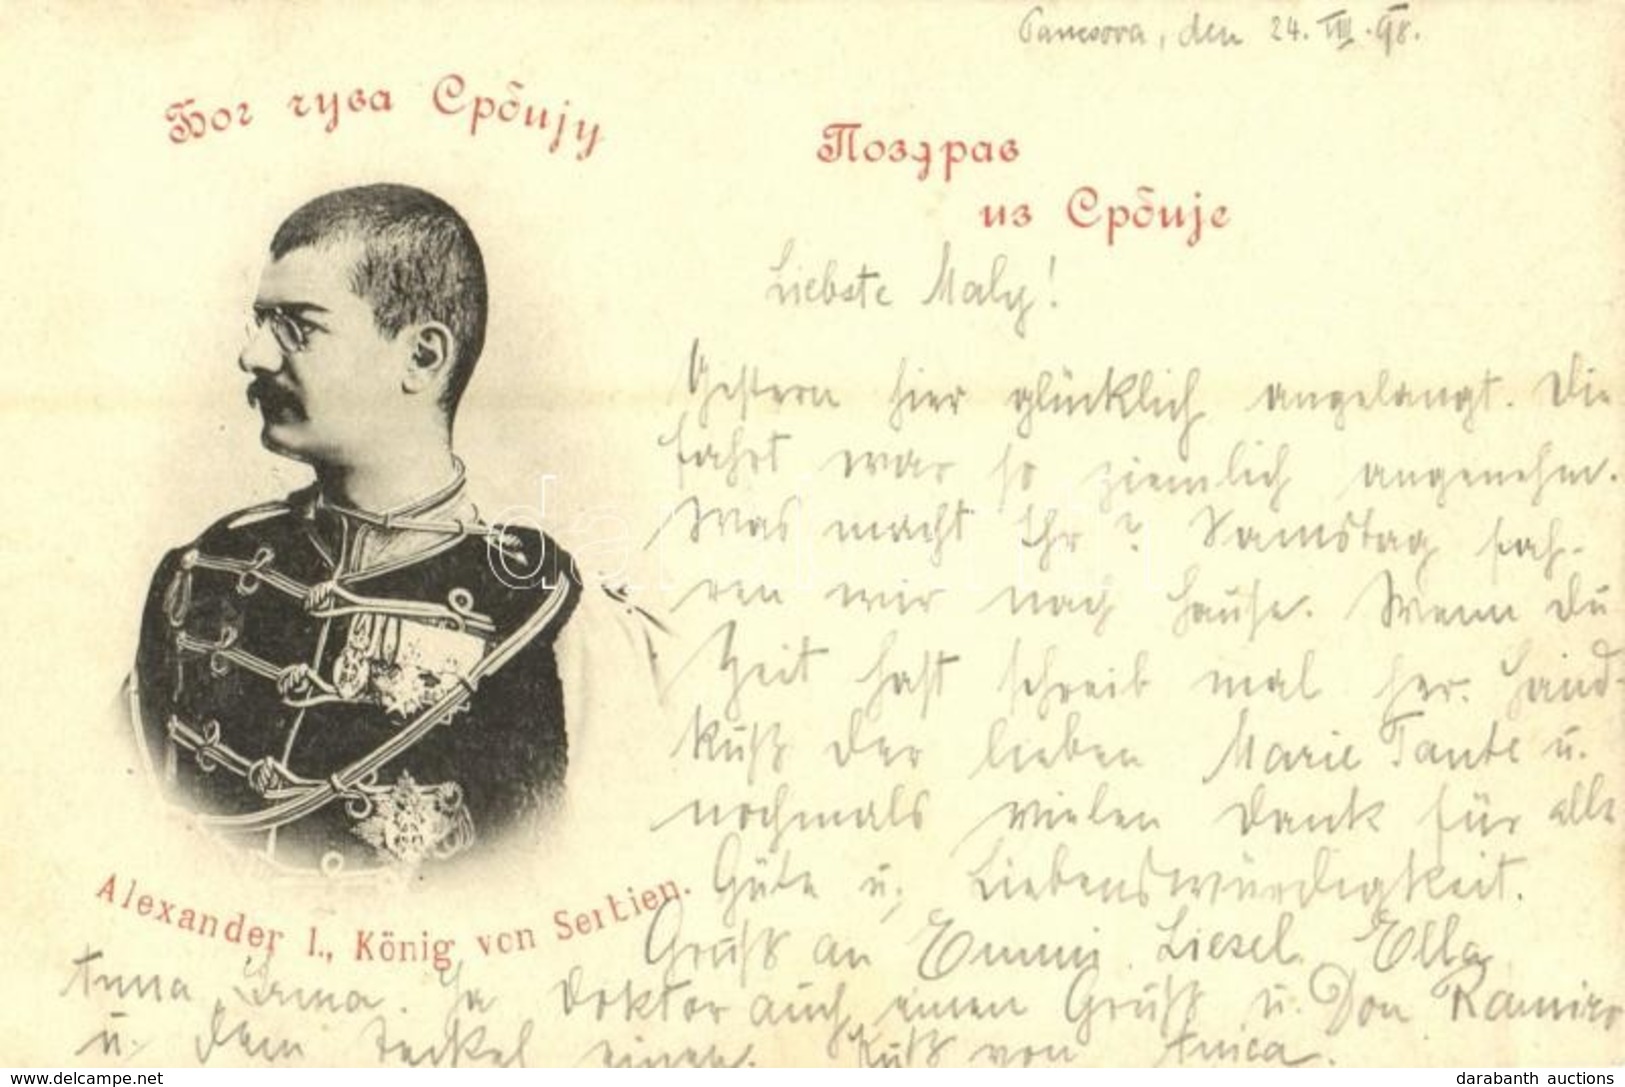 Pancsova, den 24. VIII. 98.
Бог чува Србију
Поздрав
из Србије
Liebste Maly!
Gestern hier glücklich angelangt. Die
Fahrt war so ziemlich angenehm.
Was macht Ihr? Samstag fah-
ren wir nach Hause. Wenn Du
Zeit hast schreib mal her. Hand-
kuß der lieben Marie Tante u.
nochmals vielen Dank für alle
Güte u. Liebenswürdigkeit.
Alexander I., König von Serbien.
Gruß an Emmi, Liesel, Ella,
Anna, Irma. Ja Doktor auch einen Gruß u. Don Ramiro
u. dem Teckel einen. Kuß von Anica.
darabanth
darabanth auctions